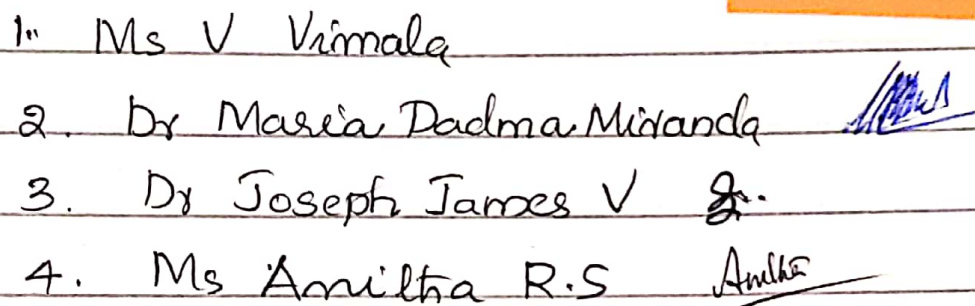 1. Ms V Vimala
2. Dr Maria Dadma Miranda
3. Dr Joseph James V
4. Ms Amiltha R.S